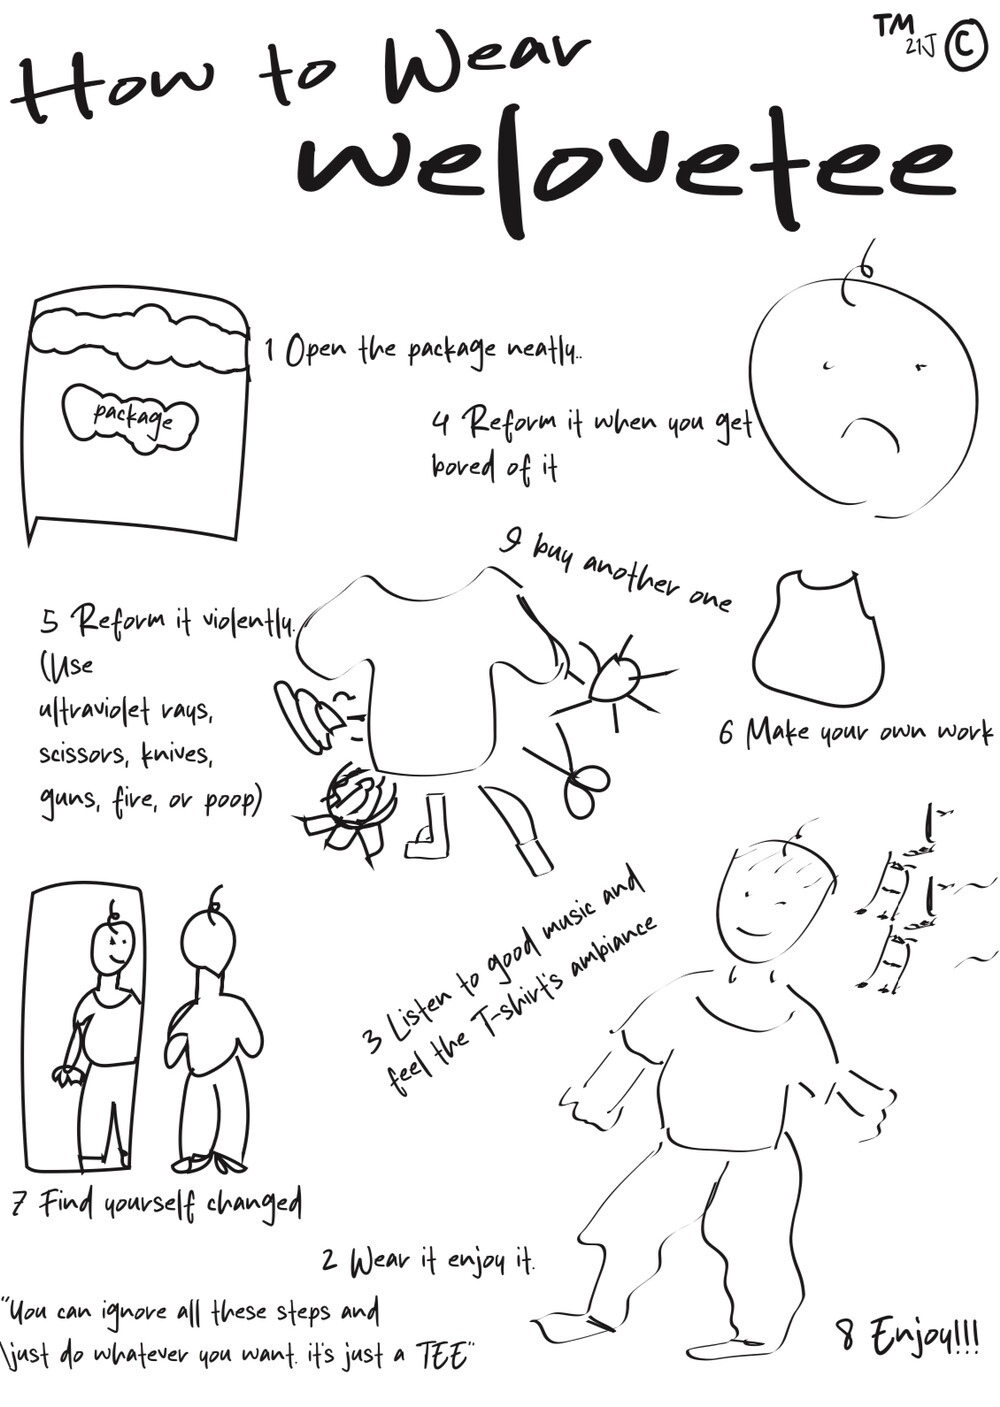 TM
21J ©
How to Wear
welovetee
1 Open the package neatly..
package
4 Reform it when you get
bored of it
9 buy another one
5 Reform it violently.
(Use
ultraviolet rays,
scissors, knives,
guns, fire, or poop)
6 Make your own work
3 Listen to good music and
feel the T-shirt's ambiance
7 Find yourself changed
2 Wear it enjoy it.
"You can ignore all these steps and
just do whatever you want. it's just a TEE"
8 Enjoy!!!